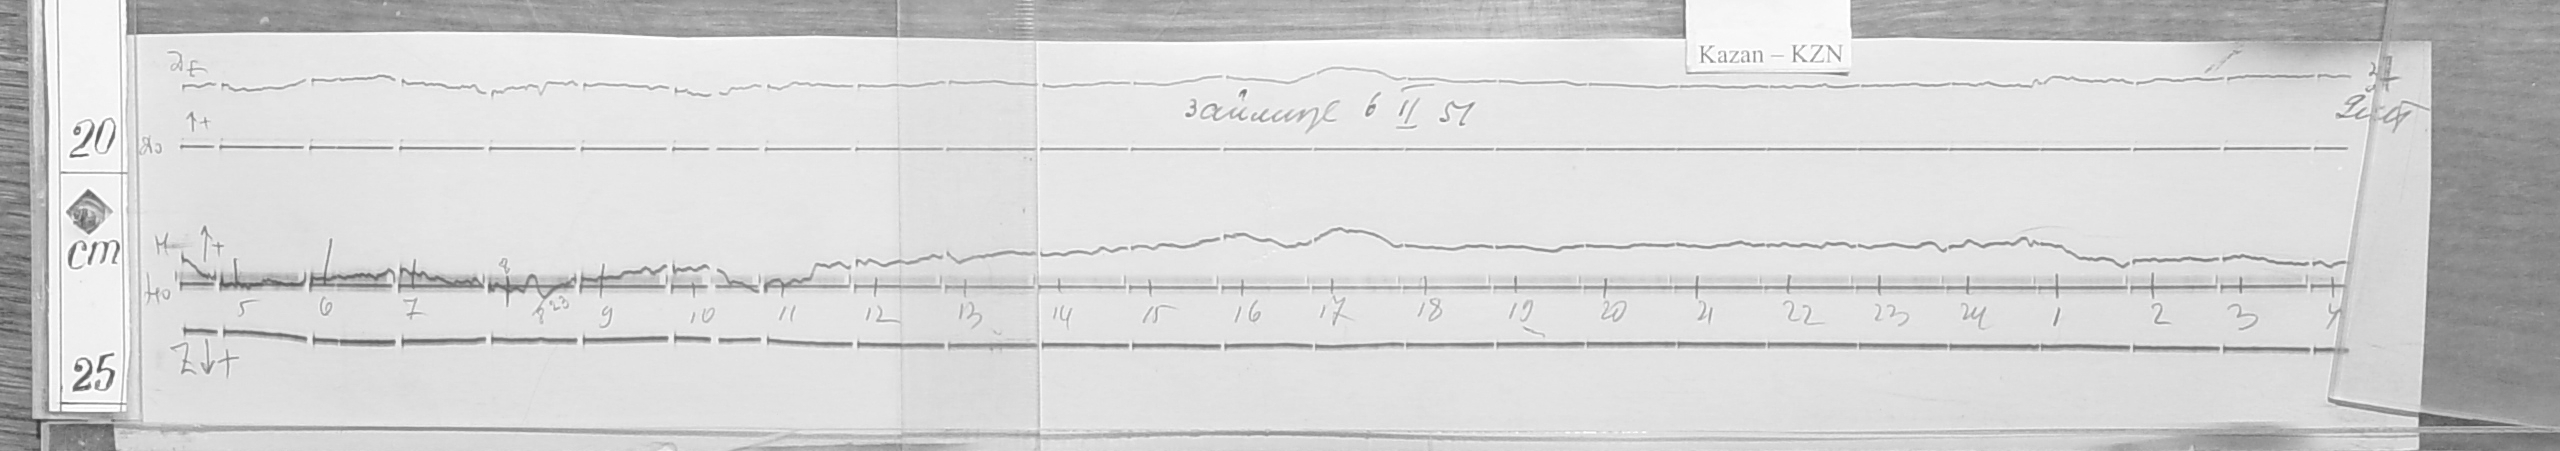 Kazan – KZN
20
cm
25
займище 6 II 51
+
H +
H0
5 6 7 8 8 23 9 10 11 12 13 14 15 16 17 18 19 20 21 22 23 24 1 2 3 4
Z +